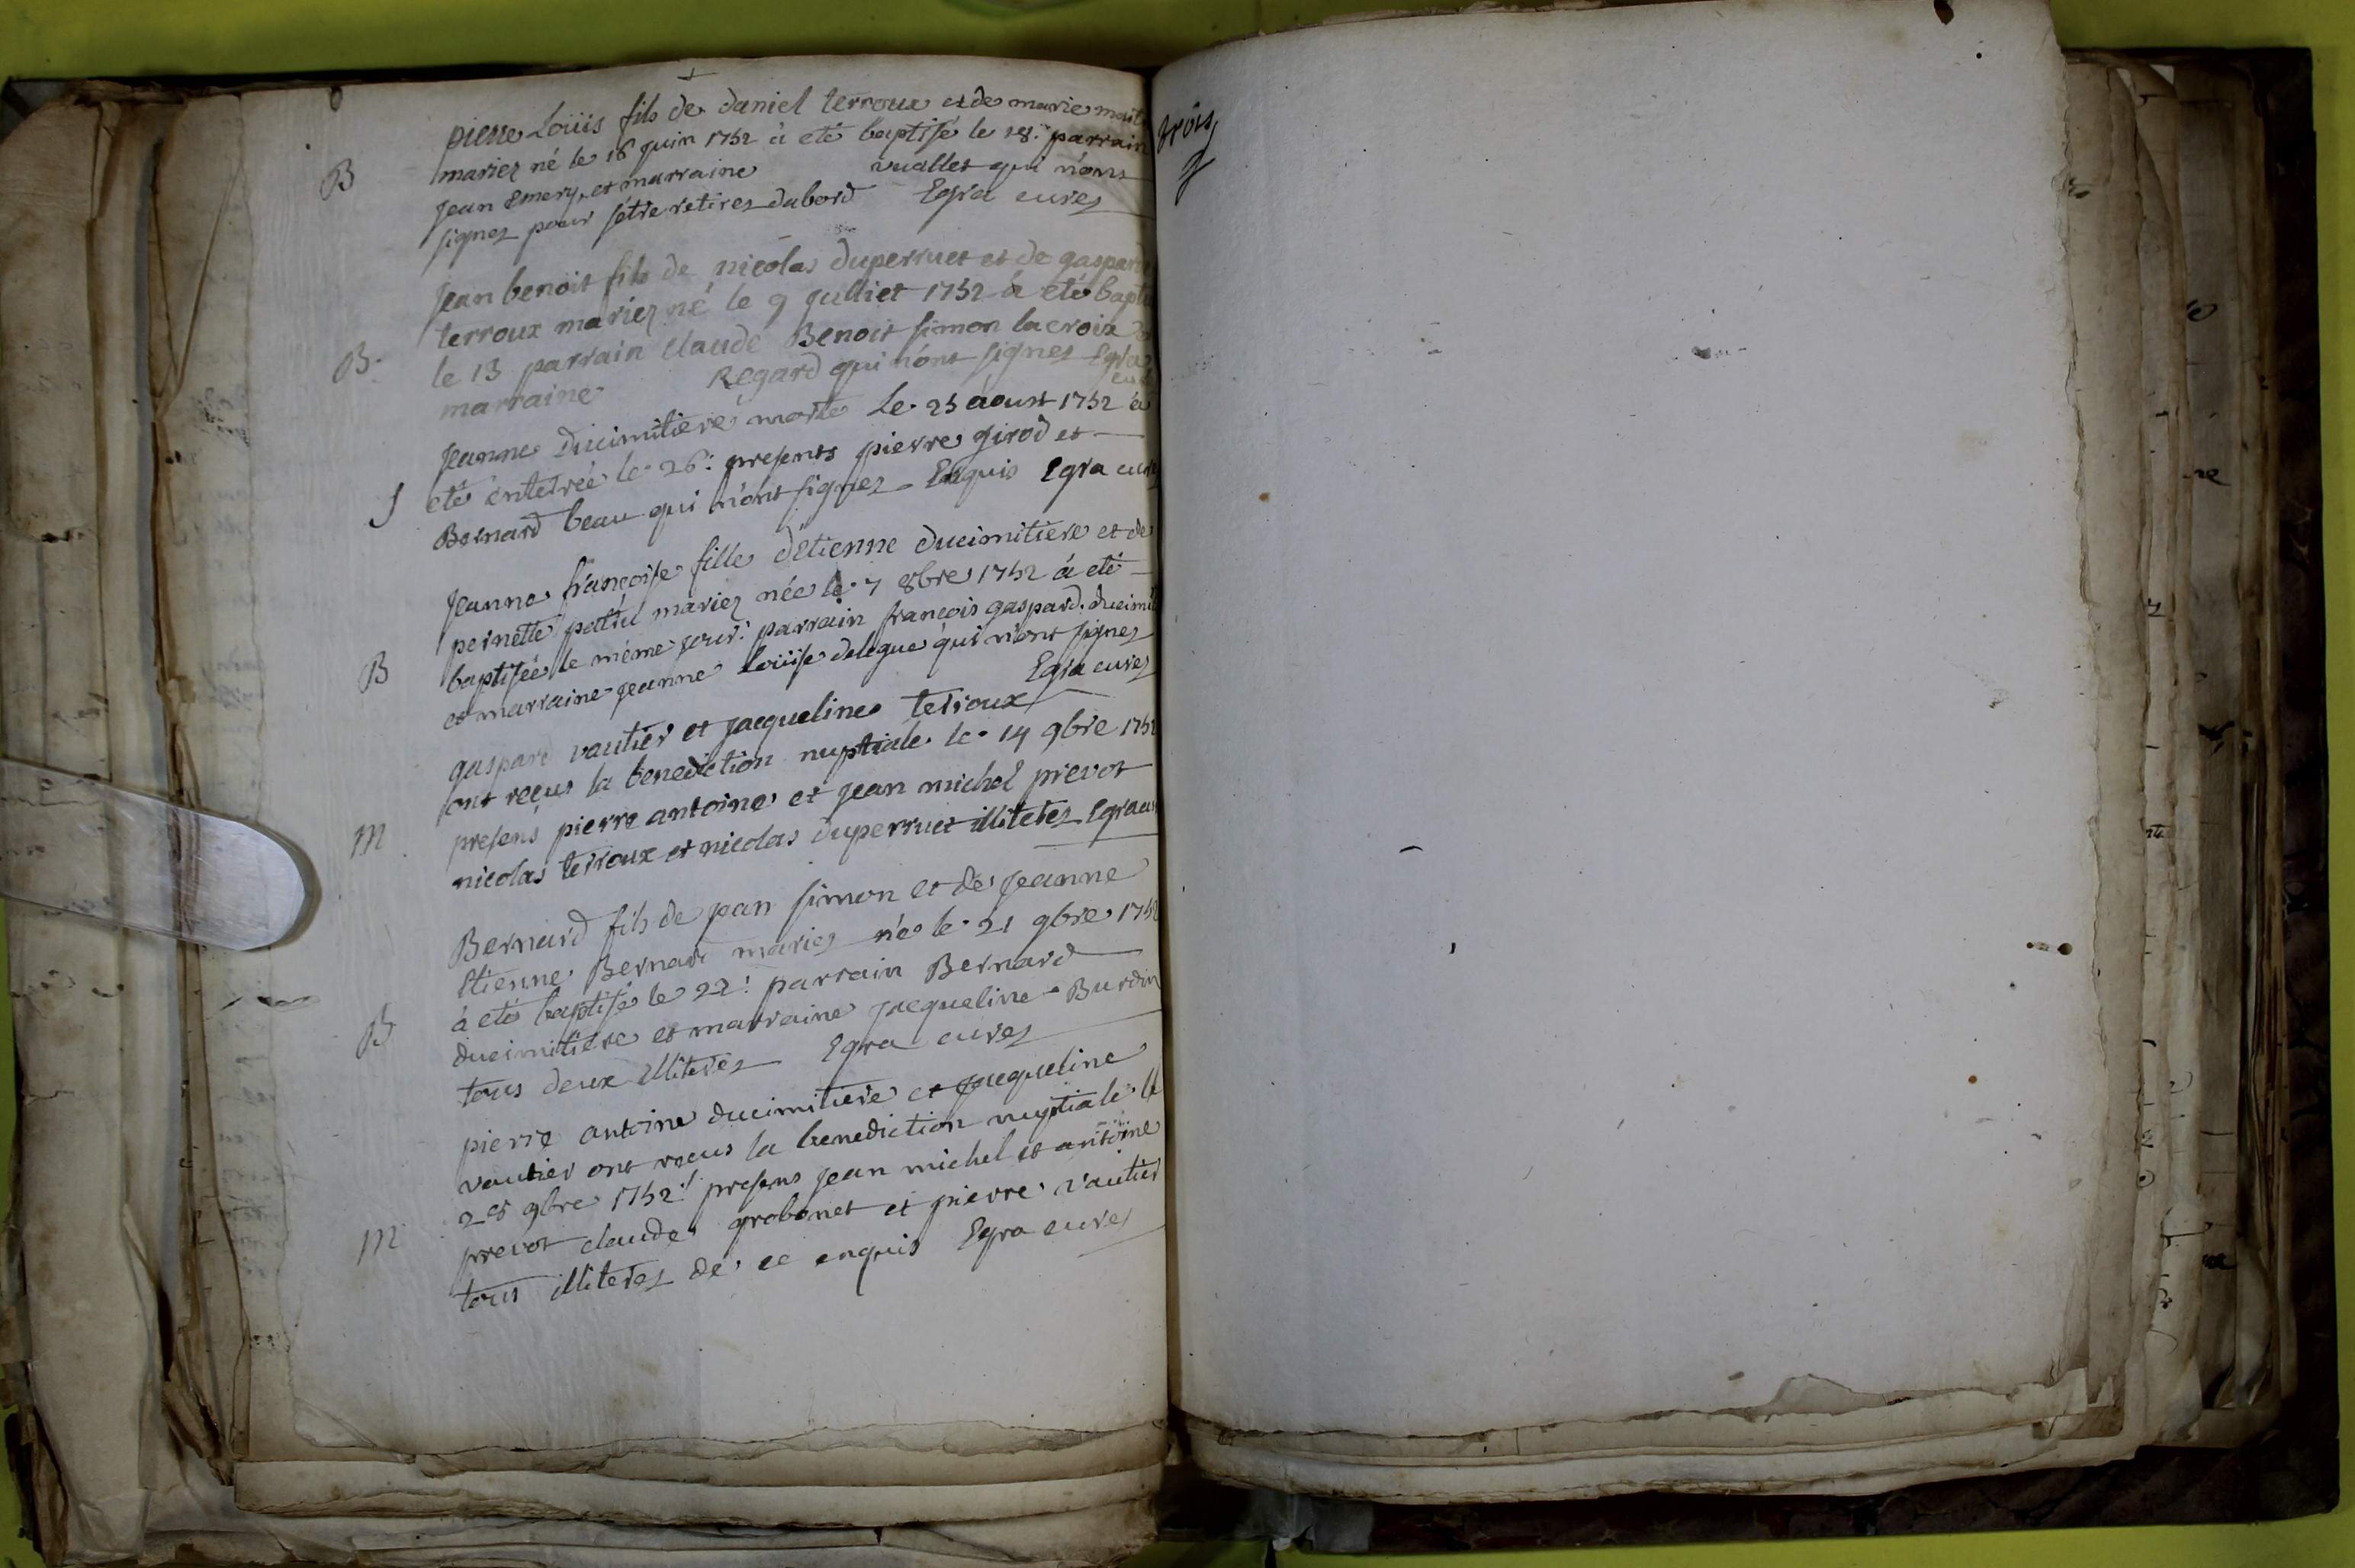 pierre Loüis fils de daniel terroux et de marie
mariez né le 16 juin 1752 à eté baptisé le 18: parrain
B
jean Emery, et marraine vuallet qui n'ont
signez pour s'étre retirez dabord Egra curez
jean benoit fils de nicolas duperruet et de gaspar
terroux mariez né le 9 julliet 1752 à eté bapti
B.
le 13 parrain claude Benoit simon lacroix
marraine Regard qui n'ont signez Egra
Jeanne ducimitiere morte le 25 aoust 1752 à
S
eté enterrée le 26: presents pierre girod et
Bernard beau qui n'ont signez Enquis Egra cure
Jeanne françoise fille d'étienne ducimitiere et de
pernette mariez née le 7 8bre 1752 à eté
B
baptisée le méme jour: parrain françois gaspard ducimi
et marraine jeanne loüise delegue qui n'ont signez
Egra curez
gaspard vautier et jacqueline terroux
ont reçus la benediction nuptiale le 14 9bre 1752
M
presens pierre antoine et jean michel prevot
nicolas terroux et nicolas duperruet illiterez Egra cur
Bernard fils de jean simon et de jeanne
Etienne Bernard mariez né le 21 9bre 1752
B
à eté baptisé le 22: parrain Bernard
ducimitiere et marraine jacqueline Burdin
tous deux illiterez Egra curez
pierre antoine ducimitiere et jacqueline
vautier ont reçus la benediction nuptiale le
28 9bre 1752: presens jean michel et antoine
M
prevot claude grobonet et pierre vautier
tous illiterez de ce enquis Egra curez
trois